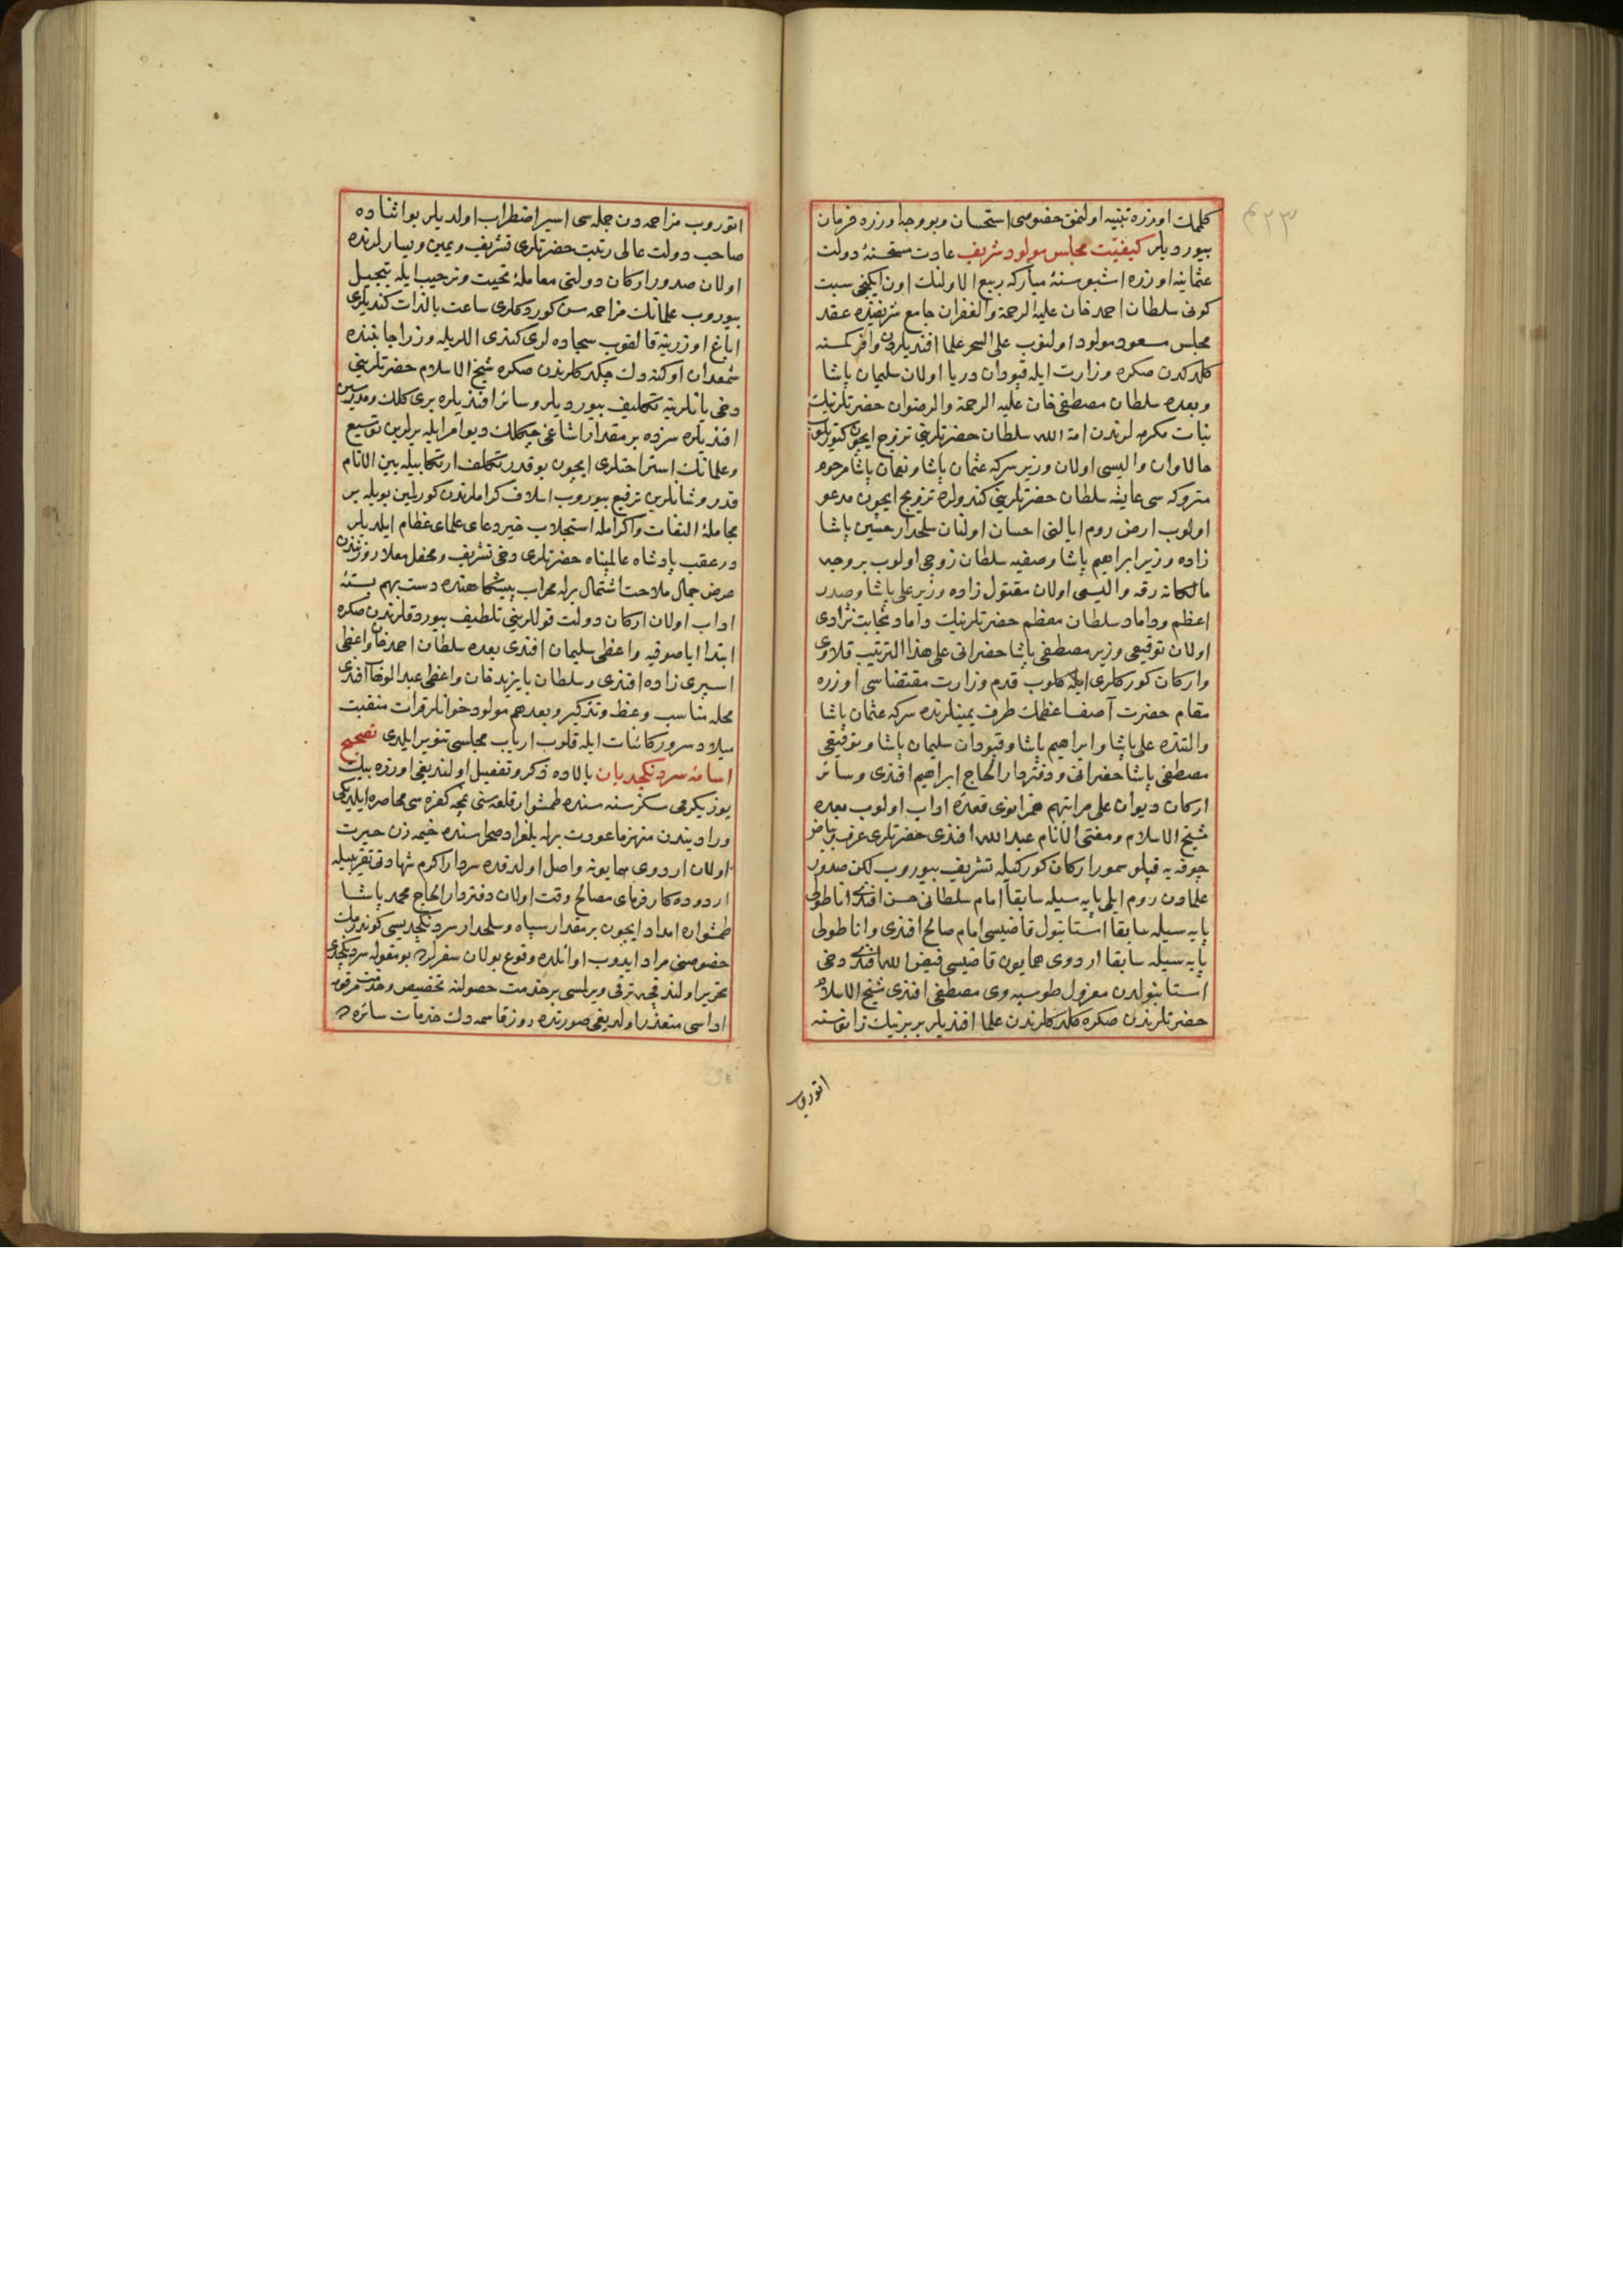 ٤٢٣
كلمات اوزره تنبيه اولنمق خصوصى استحسان و بو وجه اوزره فرمان
بيورديلر كيفيت مجلس مولود شريف عادت مستحسنهٔ دولت
عثمانيه اوزره اشبو سنهٔ مباركه ربيع الاولنك اون ايكنجى سبت
كونى سلطان احمد خان عليه الرحمة والغفران جامع شريفنده عقد
مجلس مسعود مولود اولنوب على السحر علما افنديلردن وافر كمسنه
كلدكدن صكره وزارت ايله قپودان دريا اولان سليمان پاشا
وبعده سلطان مصطفى خان عليه الرحمة والرضوان حضرتلرينك
بنات مكرمه لرندن امة الله سلطان حضرتلرينى تزوج ايچون
حالا وان واليسى اولان وزير سركه عثمان پاشا ونعمان پاشا مرحوم
متروكه سى عايشه سلطان حضرتلرينى كندولره تزويج ايچون مدعو
اولوب ارض روم ايالتى احسان اولنان سلحدار حسين پاشا
زاده وزير ابراهيم پاشا وصفيه سلطان زوجى اولوب بر وجه
مالكانه رقه واليسى اولان مقتول زاده وزير على پاشا وصدر
اعظم وداماد سلطان معظم حضرتلرينك داماد نجابت نژادى
اولان توقيعى وزير مصطفى پاشا حضراتى على هذا الترتيب قلاوى
واركان كوركلرى ايله كلوب قدم وزارت مقتضاسى اوزره
مقام حضرت آصف اعظمك طرف يمينلرنده سركه عثمان پاشا
والتنده على پاشا وابراهيم پاشا وقپودان سليمان پاشا وتوقيعى
مصطفى پاشا حضراتى ودفتردار الحاج ابراهيم افندى وسائر
اركان ديوان على مراتبهم همزانوى قعدهٔ اداب اولوب بعده
شيخ الاسلام ومفتى الانام عبد الله افندى حضرتلرى عرف بياض
چوقه يه قپلو سمور اركان كوركيله تشريف بيوروب لكن صدور
علمادن روم ايلى پايه سيله سابقا امام سلطانى حسن افندى اناطولى
پايه سيله سابقا استانبول قاضيسى امام صالح افندى واناطولى
پايه سيله سابقا اردوى همايون قاضيسى فيض الله افندى دخى
استانبولدن معزول طوسيه وى مصطفى افندى شيخ الاسلام
حضرتلرندن صكره كلدكلرندن علما افنديلر بربرينك زانوسنه
اتوروب
اتوروب مزاحمه دن جمله سى اسير اضطراب اولديلر بو اثناده
صاحب دولت عالى رتبت حضرتلرى تشريف ويمين ويسارلرنده
اولان صدور اركان دولتى معاملهٔ تحيت وترحيب ايله تبجيل
بيوروب علمانك مزاحمه سن كوردكلرى ساعت بالذات كنديلرى
اياغ اوزرينه قالقوب سجاده لرى كندى اللريله وزرا جانبنده
شمعدان اوكنه دك چكدكلرندن صكره شيخ الاسلام حضرتلرينى
دخى يانلرينه تكليف بيورديلر وسائر افنديلره برى كلك ومدرسين
افنديلره سزده بر مقدار اشاغى چكلك ديو امر ايله يرلرين توسيع
وعلمانك استراحتلرى ايچون بو قدر تكلف ارتكابيله بين الانام
قدر وشانلرين ترفيع بيوروب اسلاف كراملرندن كورلمين بويله بر
مجاملهٔ التفات واكرامله استجلاب خير دعاى علماى عظام ايلديلر
درعقب پادشاه عالمپناه حضرتلرى دخى تشريف ومحفل معلا روزنندن
عرض جمال ملاحت اشتمال برله محراب پيشكاهنده دست بهم بستهٔ
اداب اولان اركان دولت قوللرينى تلطيف بيوردقلرندن صكره
ابتدا اياصوفيه واعظى سليمان افندى بعده سلطان احمد خان واعظى
اسپرى زاده افندى وسلطان بايزيد خان واعظى عبد الوهاب افندى
محله مناسب وعظ وتذكير وبعدهم مولود خوانلر قرائت منقبت
ميلاد سرور كائنات ايله قلوب ارباب مجلسى تنوير ايلدى تصحيح
اسامئ سردنكچديان بالاده ذكر وتفصيل اولنديغى اوزره بيك
يوز يكرمى سكز سنه سنده طمشوار قلعه سنى نمچه كفره سى محاصره ايلديكى
ورادیندن منهزما عودت برله بلغراد صحراسنده خيمه زن حيرت
اولان اردوى همايونه واصل اولدقده سردار اكرم شهادتى تقريبيله
اردوده كارفرماى مصالح وقت اولان دفتردار الحاج محمد پاشا
طمشواره امداد ايچون بر مقدار سپاه وسلحدار سردنكچديسى كوندرمك
خصوصنى مراد ايدوب اوائلده وقوع بولان سفرلرده بو مقوله سردنكچدى
تحرير اولندقجه ترقى ويرلمسى بر خدمت حصولنه تخصيص وخدمت مرقومه
اداسى متعذر اولديغى صورتده روز قاسمه دك خدمات سائره ده